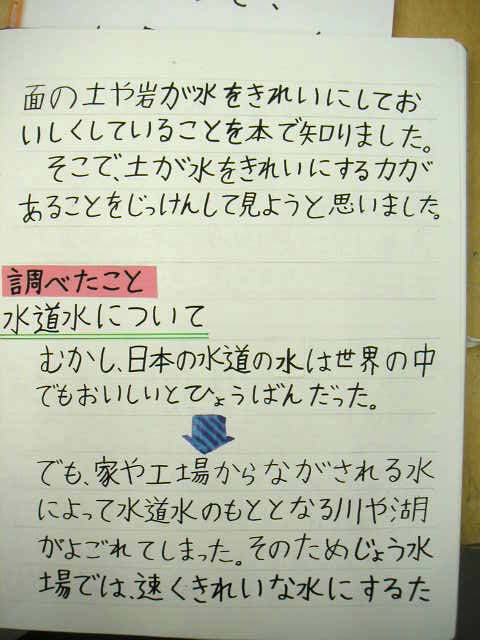 面の土や岩が水をきれいにしてお
いしくしていることを本で知りました。
そこで、土が水をきれいにする力が
あることをじっけんして見ようと思いました。
調べたこと
水道水について
むかし、日本の水道の水は世界の中
でもおいしいとひょうばんだった。
でも、家や工場からながされる水
によって水道水のもととなる川や湖
がよごれてしまった。そのためじょう水
場では、速くきれいな水にするた